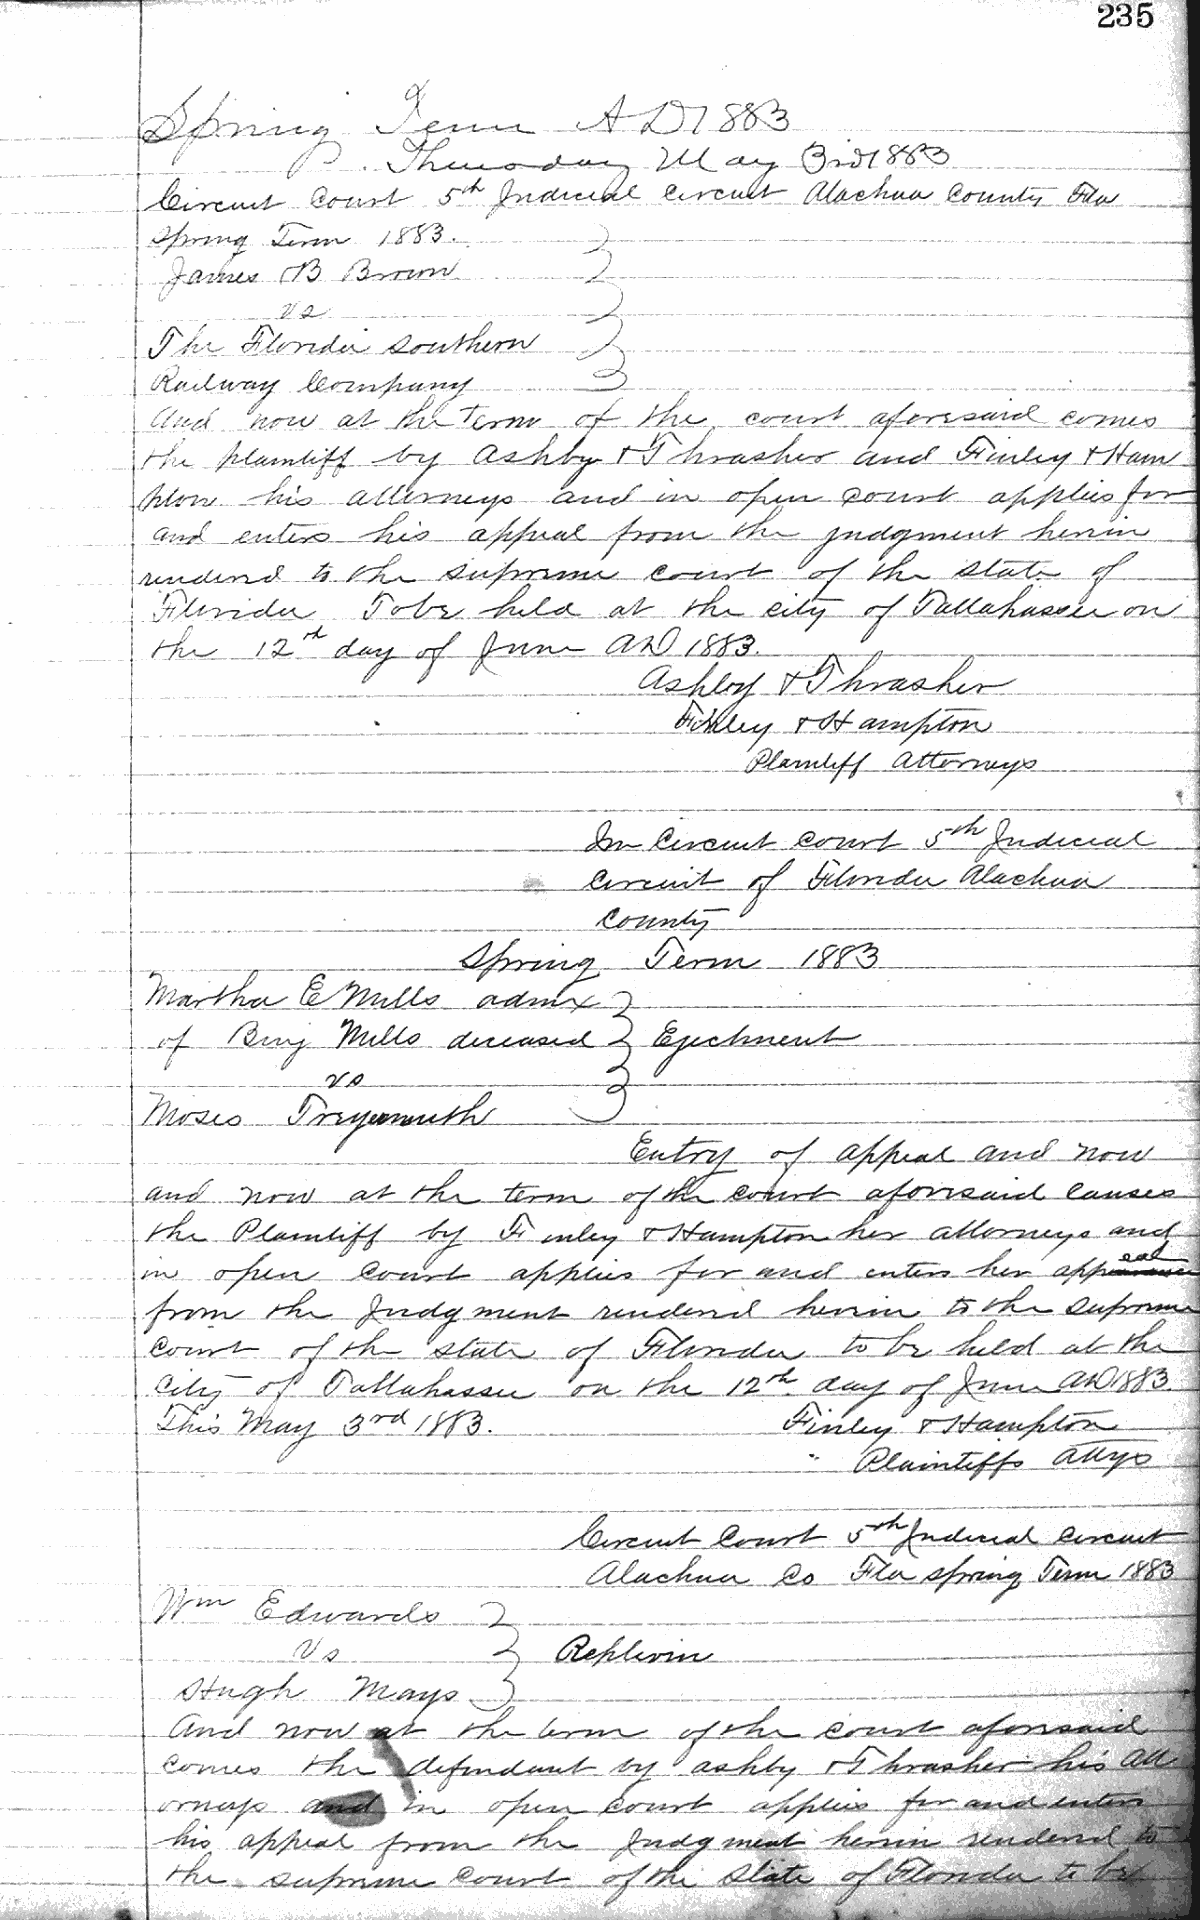 235
Spring Term AD 1883
Thursday May 3rd 1883
Circuit Court 5th Judicial Circuit Alachua County Fla
Spring Term 1883.
James B Brown
vs
The Florida Southern
Railway Company
And now at the Term of the court aforesaid comes
the plaintiff by Ashby & Thrasher and Finley & Ham
pton his attorneys and in open court applies for
and enters his appeal from the judgment herein
rendered to the Supreme court of the State of
Florida To be held at the city of Tallahassee on
the 12th day of June AD 1883.
Ashby & Thrasher
Finley & Hampton
Plaintiff Attorneys
In Circuit Court 5th Judicial
Circuit of Florida Alachua
County
Spring Term 1883
Martha E Mills admx
of Benj Mills deceased } Ejectment
vs
Moses
Entry of appeal and now
and now at the term of the court aforesaid causes
the Plaintiff by Finley & Hampton her attorneys and
in open court applies for and enters her appeal
from the Judgment rendered herein to the Supreme
Court of the State of Florida to be held at the
City of Tallahassee on the 12th day of June AD 1883.
This May 3rd 1883. Finley & Hampton
Plaintiffs Attys
Circuit Court 5th Judicial Circuit
Alachua Co Fla Spring Term 1883
Wm Edwards
Vs } Replevin
Hugh Mays
And now at the term of the court aforesaid
comes the defendant by Ashby & Thrasher his Att
orneys and in open court applies for and enters
his appeal from the Judgment herein rendered to
the supreme court of the State of Florida to be